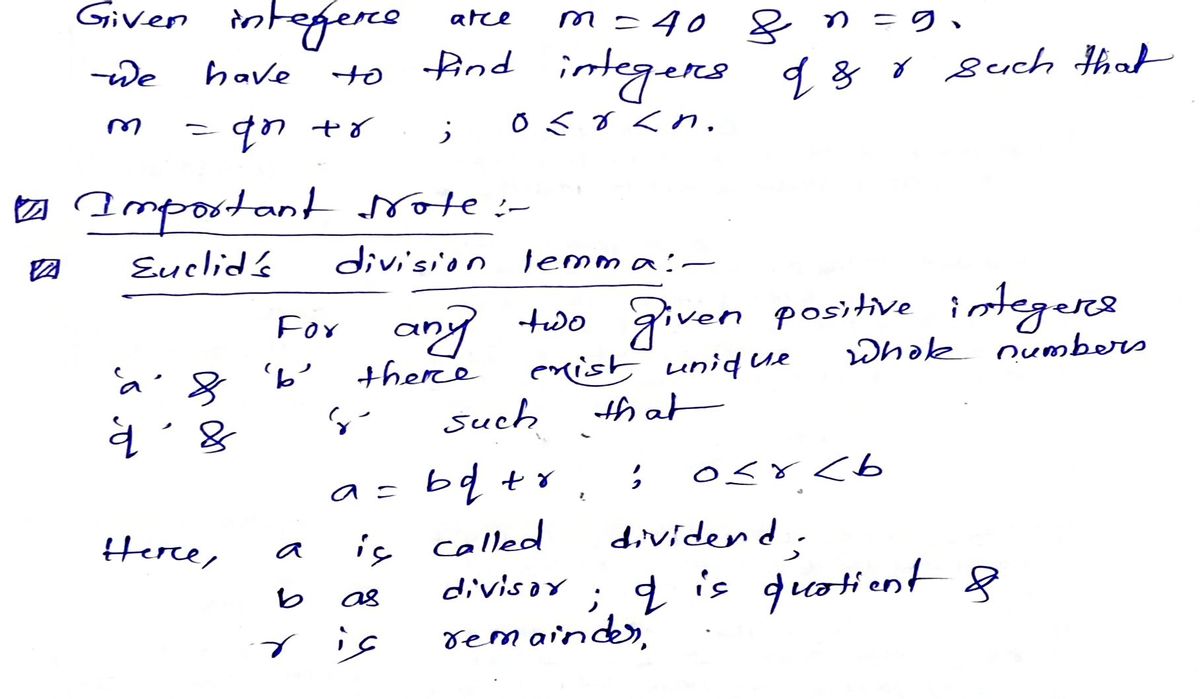 Given integers are m = 40 & n = 9.
We have to find integers q & r such that
m = qn + r ; 0 ≤ r < n.
Important Note :-
Euclid's division lemma :-
For any two given positive integers
'a' & 'b' there exist unique whole numbers
'q' & 'r' such that
a = bq + r ; 0 ≤ r < b
Here, a is called dividend;
b as divisor ; q is quotient &
r is remainder.